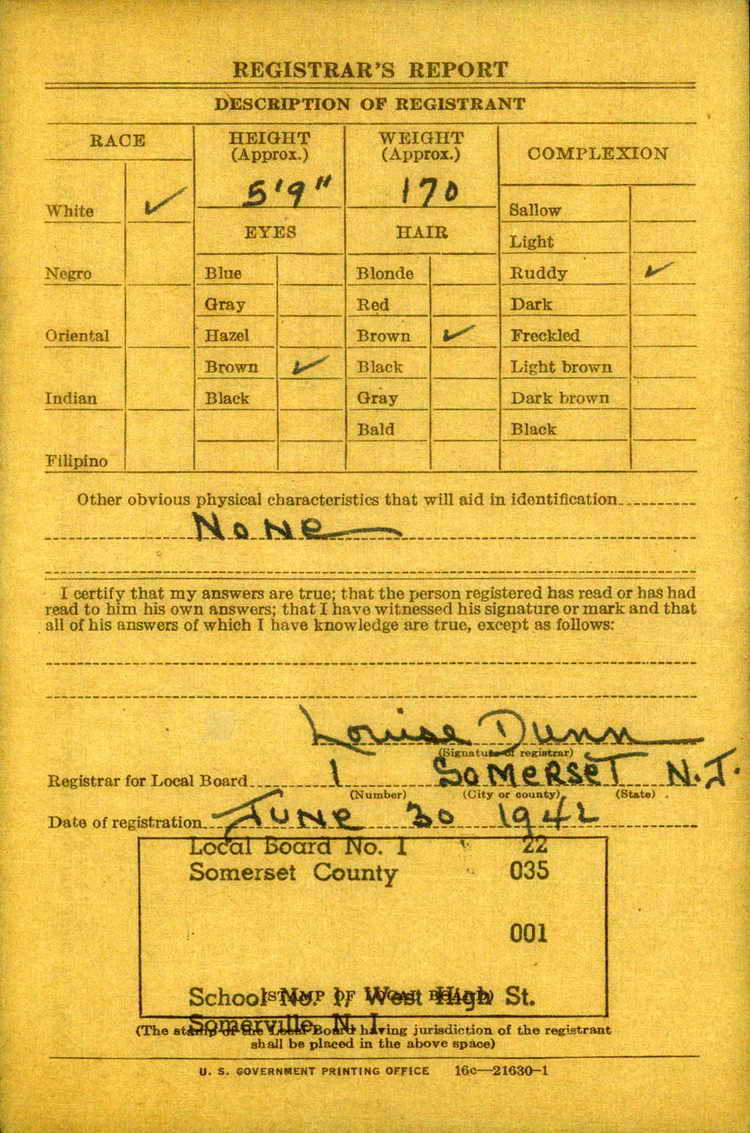 REGISTRAR'S REPORT
DESCRIPTION OF REGISTRANT
RACE HEIGHT (Approx.) WEIGHT (Approx.) COMPLEXION
5'9" 170
White ✓ Sallow
EYES HAIR
Light
Negro Blue Blonde Ruddy ✓
Gray Red Dark
Oriental Hazel Brown ✓ Freckled
Brown ✓ Black Light brown
Indian Black Gray Dark brown
Bald Black
Filipino
Other obvious physical characteristics that will aid in identification
None
I certify that my answers are true; that the person registered has read or has had
read to him his own answers; that I have witnessed his signature or mark and that
all of his answers of which I have knowledge are true, except as follows:
Louise Dunn
(Signature of registrar)
Registrar for Local Board 1 Somerset N.J.
(Number) (City or county) (State)
Date of registration June 30 1942
Local Board No. 1 22
Somerset County 035
001
School No. 1, West High St.
(STAMP OF LOCAL BOARD)
Somerville, N. J.
(The stamp of the Local Board having jurisdiction of the registrant
shall be placed in the above space)
U. S. GOVERNMENT PRINTING OFFICE 16c—21630-1